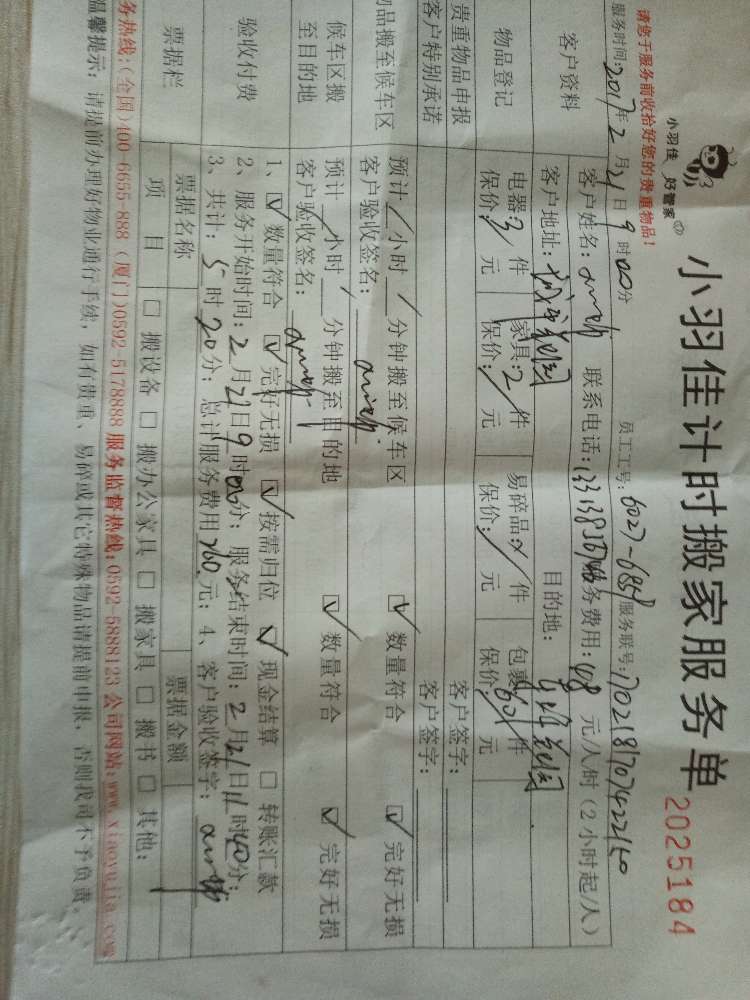 小羽佳 好管家
小羽佳计时搬家服务单
2025184
请您于服务前收拾好您的贵重物品！
服务时间：2017年2月21日9时00分 员工工号：6027-6858 服务联号：
客户资料 客户姓名： 联系电话： 服务费用：108元/人/时（2小时起/人）
客户地址： 目的地：
物品登记 电器：3件 家具：2件 易碎品： 件 包裹：60件
保价： 元 保价：/元 保价：/元 保价： 元
贵重物品申报 客户签字：
客户特别承诺 客户签字：
物品搬至候车区 预计/小时/分钟搬至候车区 ☑数量符合 ☑完好无损
客户验收签名：
候车区搬至目的地 预计 小时 分钟搬至目的地 ☑数量符合 ☑完好无损
客户验收签名：
验收付费 1、☑数量符合 ☑完好无损 ☑按需归位 ☑现金结算 □转账汇款
2、服务开始时间：2月21日9时00分；服务结束时间：2月21日11时40分；
3、共计：5时20分；总计服务费用 元；4、客户验收签字：
票据栏 票据名称 票据金额
项目 □搬设备 □搬办公家具 □搬家具 □搬书 □其他：
务热线：(全国)400-6655-888 (厦门)0592-5178888 服务监督热线：0592-5888123 公司网站：www.xiaoyujia.com
温馨提示：请提前办理好物业通行手续，如有贵重、易碎或其它特殊物品请提前申报，否则我司不予负责。